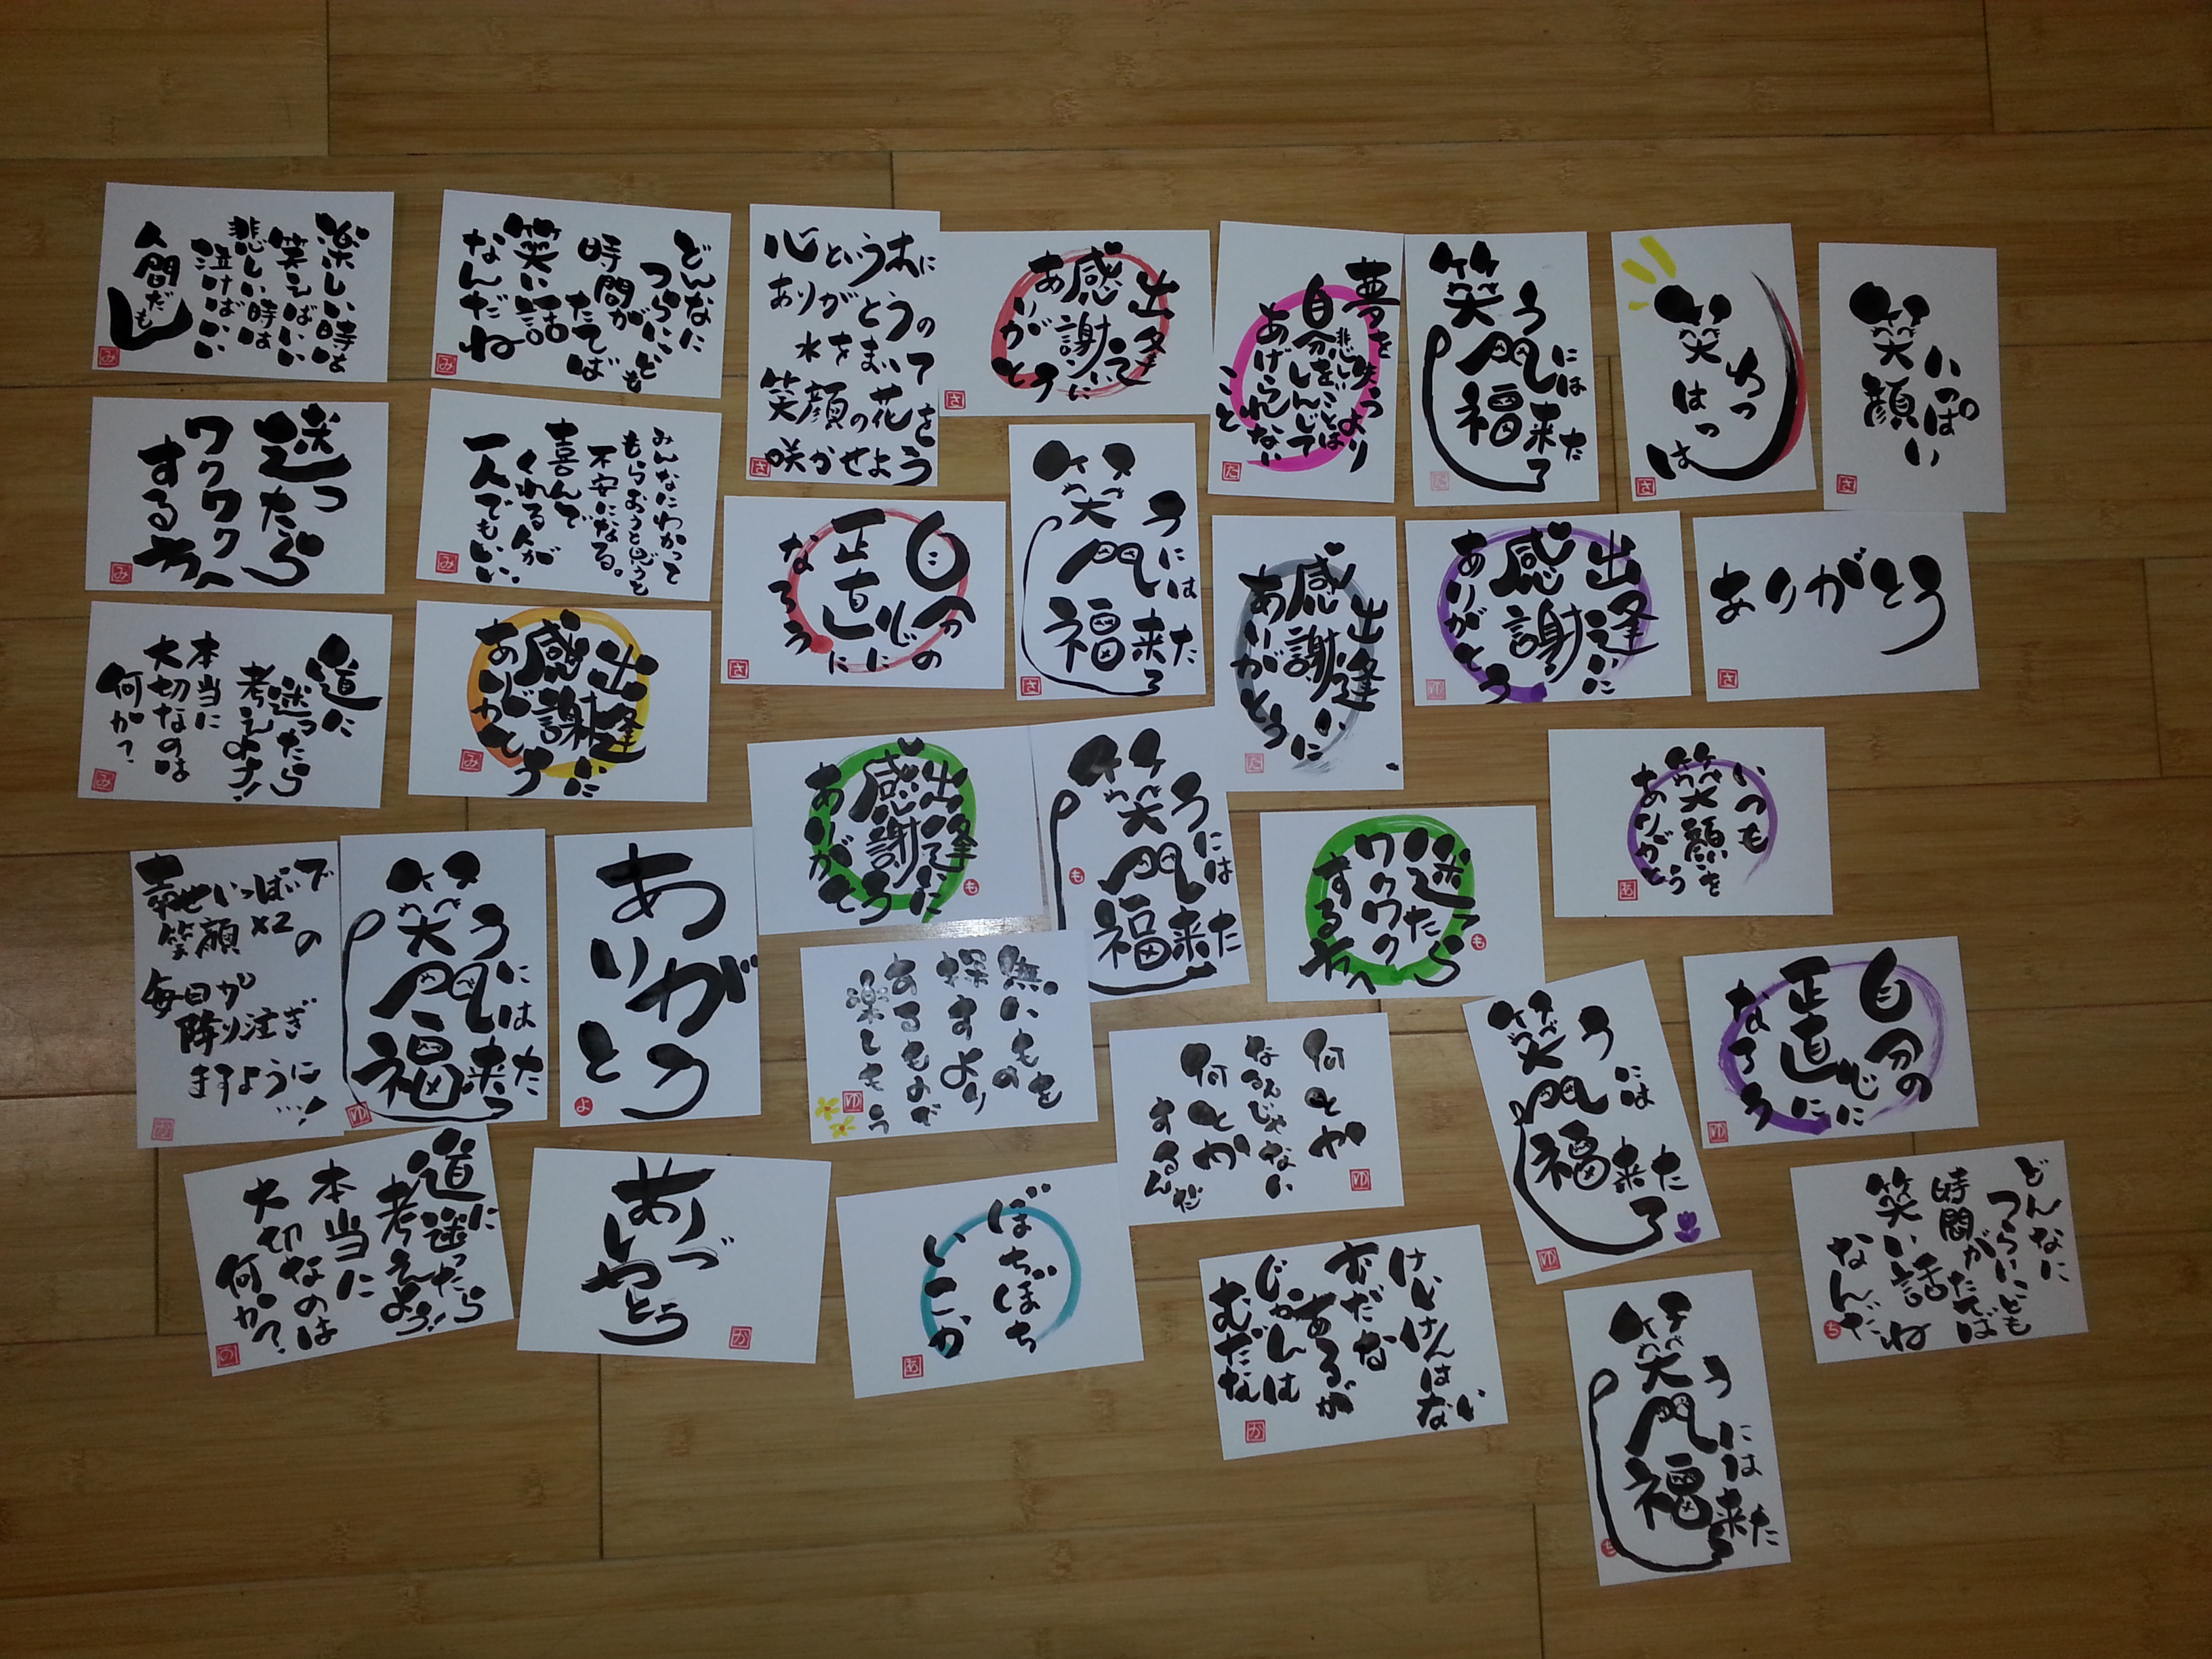 楽しい時は
笑えばいい
悲しい時は
泣けばいい
人間だもし
み
どんなに
つらいども
時間が
たてば
笑い話
なんだね
み
心という木に
ありがとうの
水をまいて
笑顔の花を
咲かせよう
さ
出逢いに
感謝
ありがとう
さ
夢を失うより
悲しいことは
自分をしんじて
あげられない
こと
た
笑う門には
福来たる
笑
わっ
はっ
は
さ
いっぱい
笑顔
さ
迷ったら
ワクワク
する方へ
み
みんなにわかって
もらおうと思うと
不安になる。
喜んで
くれる人が
一人でもいい。
み
自分の
心に
正直に
なろう
さ
笑う門には
福来たる
さ
出逢いに
感謝
ありがとう
た
出逢いに
感謝
ありがとう
ゆ
ありがとう
さ
道に
迷ったら
考えよう!
本当に
大切なのは
何か?
み
出逢いに
感謝
ありがとう
み
出逢いに
感謝
ありがとう
も
笑う門には
福来たる
も
迷ったら
ワクワク
する方へ
も
いつも
笑顔を
ありがとう
あ
幸せいっぱいで
笑顔×2の
毎日が
降り注ぎ
ますように
…!
笑う門には
福来たる
ゆ
あ
りが
とう
よ
無いものを
探すより
あるもので
楽しもう
ゆ
何とか
なるんじゃない
何とか
するんだ
ゆ
笑う門には
福来たる
ゆ
自分の
心に
正直に
なろう
ゆ
道に
迷ったら
考えよう!
本当に
大切なのは
何か?
の
か
ぼちぼち
いこか
あ
けいけんはない
むだな
あるが
じかんは
むだな
か
どんなに
つらいども
時間がたてば
笑い話
なんだね
ち
笑う門には
福来たる
ち